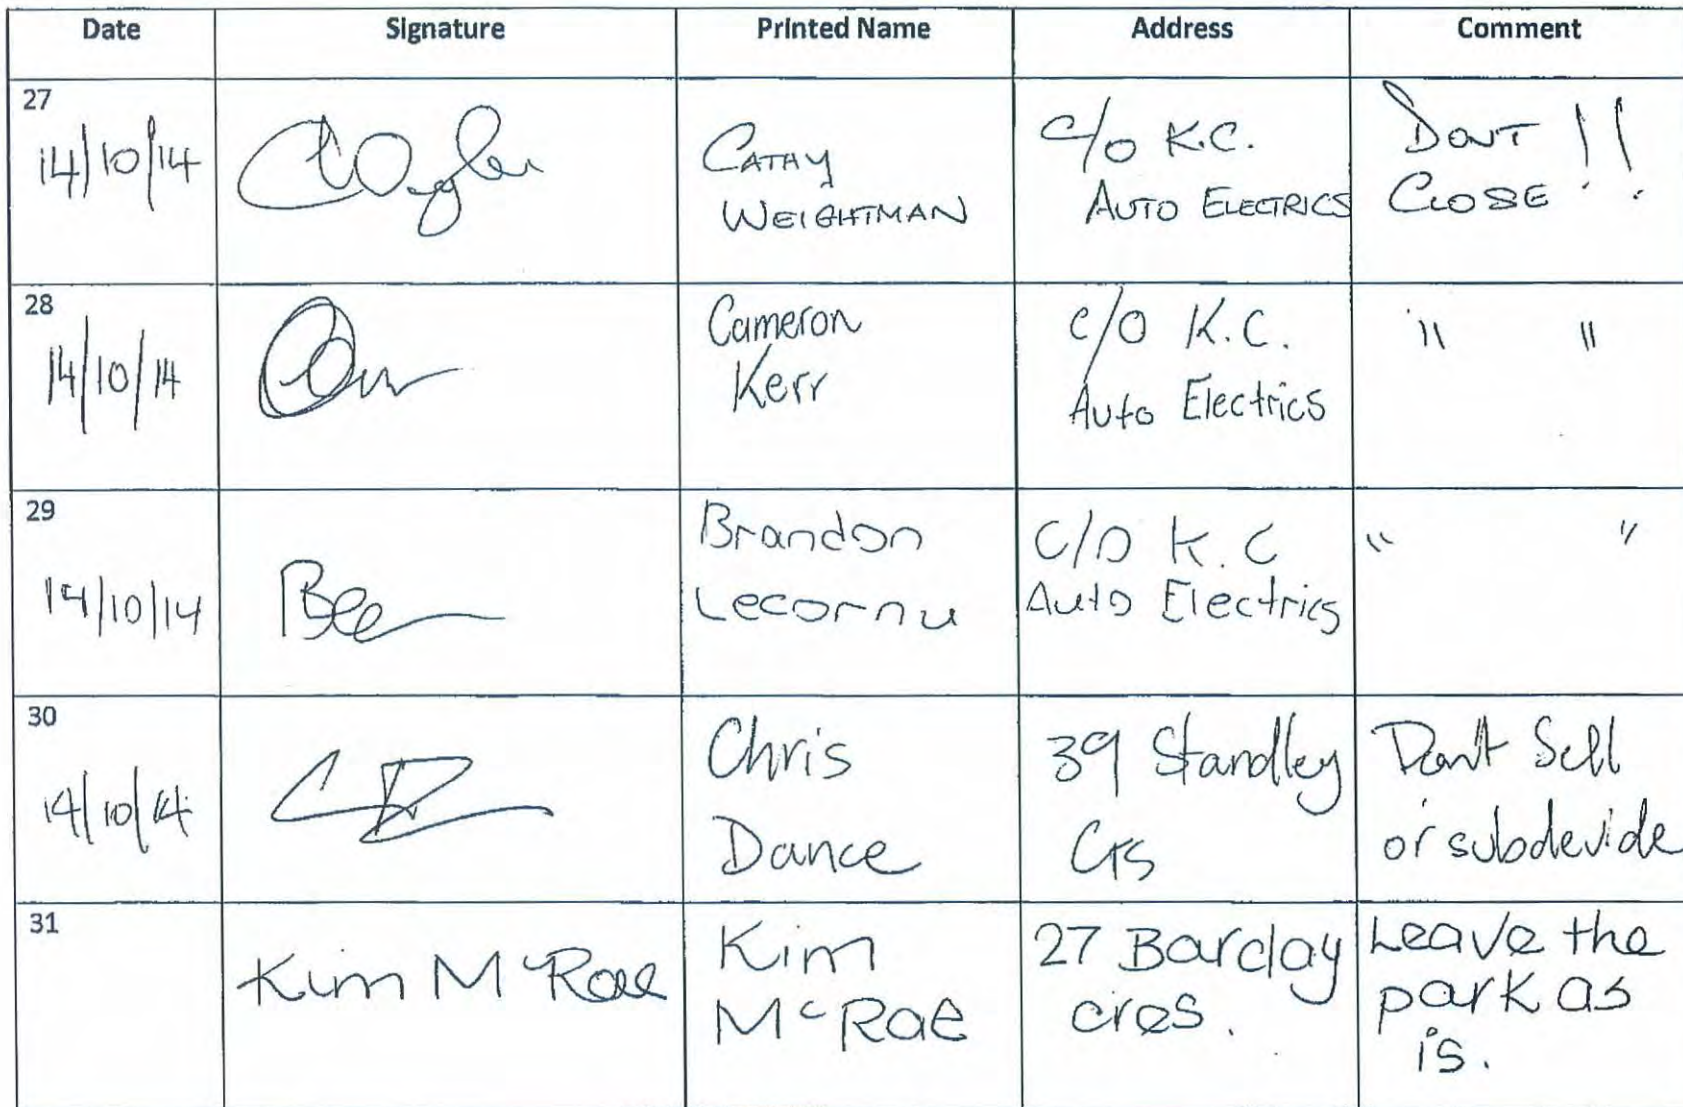 Date Signature Printed Name Address Comment
27
14/10/14 CATHY WEIGHTMAN c/o K.C. AUTO ELECTRICS DONT CLOSE !!
28
14/10/14 Cameron Kerr c/o K.C. Auto Electrics " "
29
14/10/14 Brandon Lecornu C/O K.C Auto Electrics " "
30
14/10/14 Chris Dance 39 Standley Crs Don't Sell or subdevide
31
Kim McRae Kim McRae 27 Barclay cres. Leave the park as is.